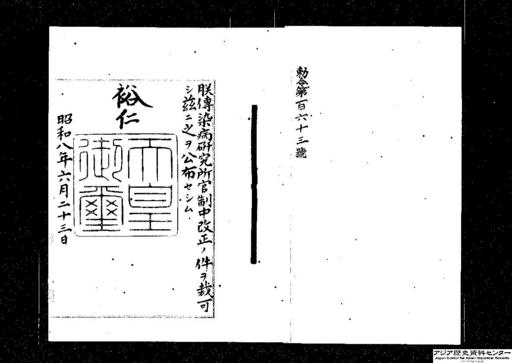 勅令第百六十三號
朕傳染病研究所官制中改正ノ件ヲ裁可
シ茲ニ之ヲ公布セシム
裕仁
天皇
御璽
昭和八年六月二十三日
アジア歴史資料センター
Japan Center for Asian Historical Records